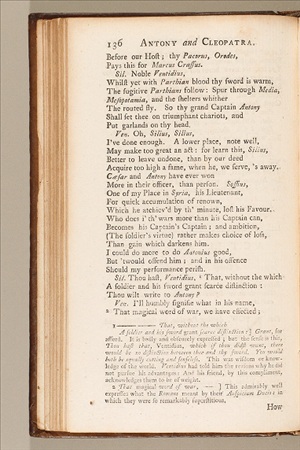 136 ANTONY and CLEOPATRA.
Before our Host; thy Pacorus, Orodes,
Pays this for Marcus Crassus.
Sil. Noble Ventidius,
Whilst yet with Parthian blood thy sword is warm,
The fugitive Parthians follow: Spur through Media,
Mesopotamia, and the shelters whither
The routed fly. So thy grand Captain Antony
Shall set thee on triumphant chariots, and
Put garlands on thy head.
Ven. Oh, Silius, Silius,
I've done enough. A lower place, note well,
May make too great an act: for learn this, Silius,
Better to leave undone, than by our deed
Acquire too high a fame, when he, we serve, 's away.
Cæsar and Antony have ever won
More in their officer, than person. Sossius,
One of my Place in Syria, his Lieutenant,
For quick accumulation of renown,
Which he atchiev'd by th' minute, lost his Favour.
Who does i' th' wars more than his Captain can,
Becomes his Captain's Captain; and ambition,
(The soldier's virtue) rather makes choice of loss,
Than gain which darkens him.
I could do more to do Antonius good,
But 'twould offend him; and in his offence
Should my performance perish.
Sil. Thou hast, Ventidius, ¹ That, without the which
A soldier and his sword grant scarce distinction:
Thou wilt write to Antony?
Ven. I'll humbly signifie what in his name,
² That magical word of war, we have effected;
That, without the which
A soldier and his sword grant scarce distinction:] Grant, for
afford. It is badly and obscurely expressed; but the sense is this,
Thou hast that, Ventidius, which if thou didst want, there
would be no distinction between thee and thy sword. You would
both be equally cutting and senseless. This was wisdom or know-
ledge of the world. Ventidius had told him the reasons why he did
not pursue his advantages: And his friend, by this compliment,
acknowledges them to be of weight.
2 That magical word of war, —] This admirably well
expresses what the Romans meant by their
in which they were so remarkably superstitious.
How